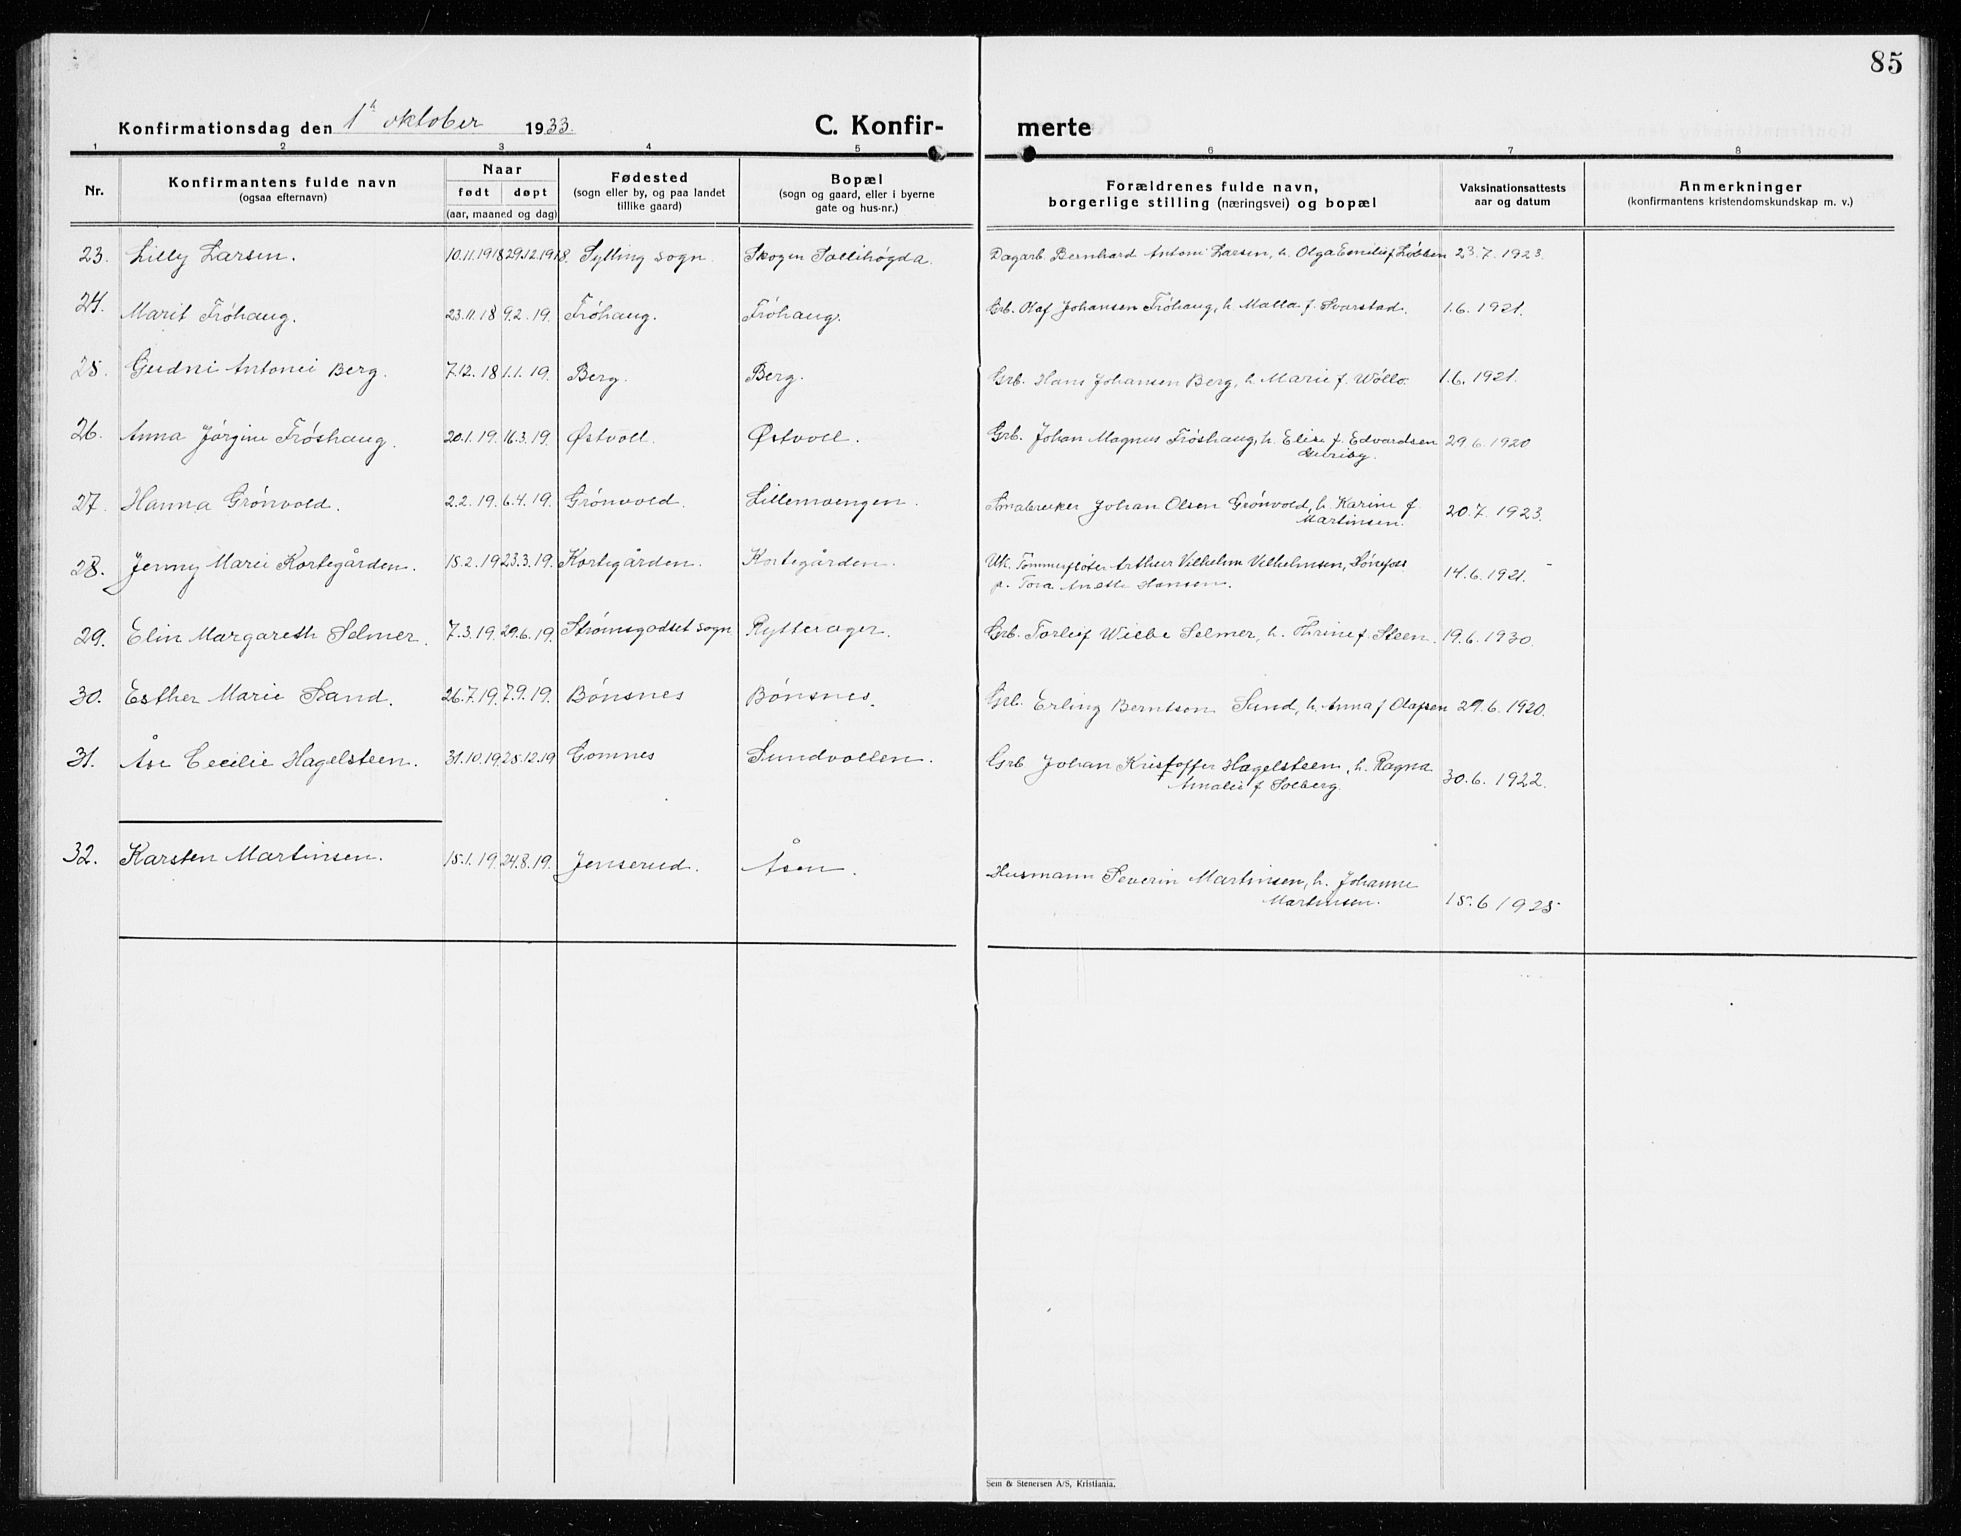 85
Konfirmationsdag den 1ste oktober 1933. C. Konfir- merte
1 2 3 4 5 6 7 8
Nr. Konfirmantens fulde navn (ogsaa efternavn) Naar født døpt (aar, maaned og dag) Fødested (sogn eller by, og paa landet tillike gaard) Bopæl (sogn og gaard, eller i byerne gate og hus-nr.) Forældrenes fulde navn, borgerlige stilling (næringsvei) og bopæl Vaksinationsattests aar og datum Anmerkninger (konfirmantens kristendomskundskap m. v.)
23. Lilly Larsen. 10.11.1918 29.12.1918. Sylling sogn. Skogen Sollihøgda. Dagarb. Bernhard Antoni Larsen, h. Olga Emilie f. Løbben 23.7.1923.
24. Marit Frøhaug. 23.11.18 9.2.19. Frøhaug. Frøhaug. Grb. Olaf Johansen Frøhaug, h. Malla f. Svarstad. 1.6.1921.
25. Gudni Antonei Berg. 7.12.18 1.1.19. Berg. Berg. Grb. Hans Johansen Berg, h. Marie f. Wøllo. 1.6.1921.
26. Anna Jørgine Frøshaug. 20.1.19. 16.3.19. Østvoll. Østvoll. Grb. Johan Magnus Frøshaug, h. Elise f. Edvardsen 29.6.1920
27. Hanna Grønvold. 2.2.19. 6.4.19. Grønvold. Lillemoengen. Småbruker Johan Olsen Grønvold, h. Karine f. Martinsen. 20.7.1923.
28. Jenny Marie Kortegården. 15.2.19 23.3.19. Kortegården. Kortegården. Uk. Tømmerfløter Arthur Vilhelm Vilhelmsen, Hønefoss
p. Tora Anette Hansen. 14.6.1921.
29. Elin Margareth Selmer. 7.3.19. 29.6.19. Strømsgodset sogn Rytterager. Grb. Torleif Wiebe Selmer, h. Thrine f. Steen. 19.6.1930.
30. Esther Marie Sand. 26.7.19. 7.9.19. Bønsnes Bønsnes. Grb. Erling Berntson Sund, h. Anna f Olafsen 29.6.1920.
31. Åse Cecilie Hagelsteen. 31.10.19. 25.12.19 Gomnes Sundvollen. Grb Johan Kristoffer Hagelsteen, h. Ragna
Amalie f Solberg. 30.6.1922.
32. Karsten Martinsen. 15.1.19. 24.8.19. Jenserud. Åsen. Husmann Severin Martinsen, h. Johanne
Martinsen. 15.6 1925
Sem & Stenersen A/S, Kristiania.